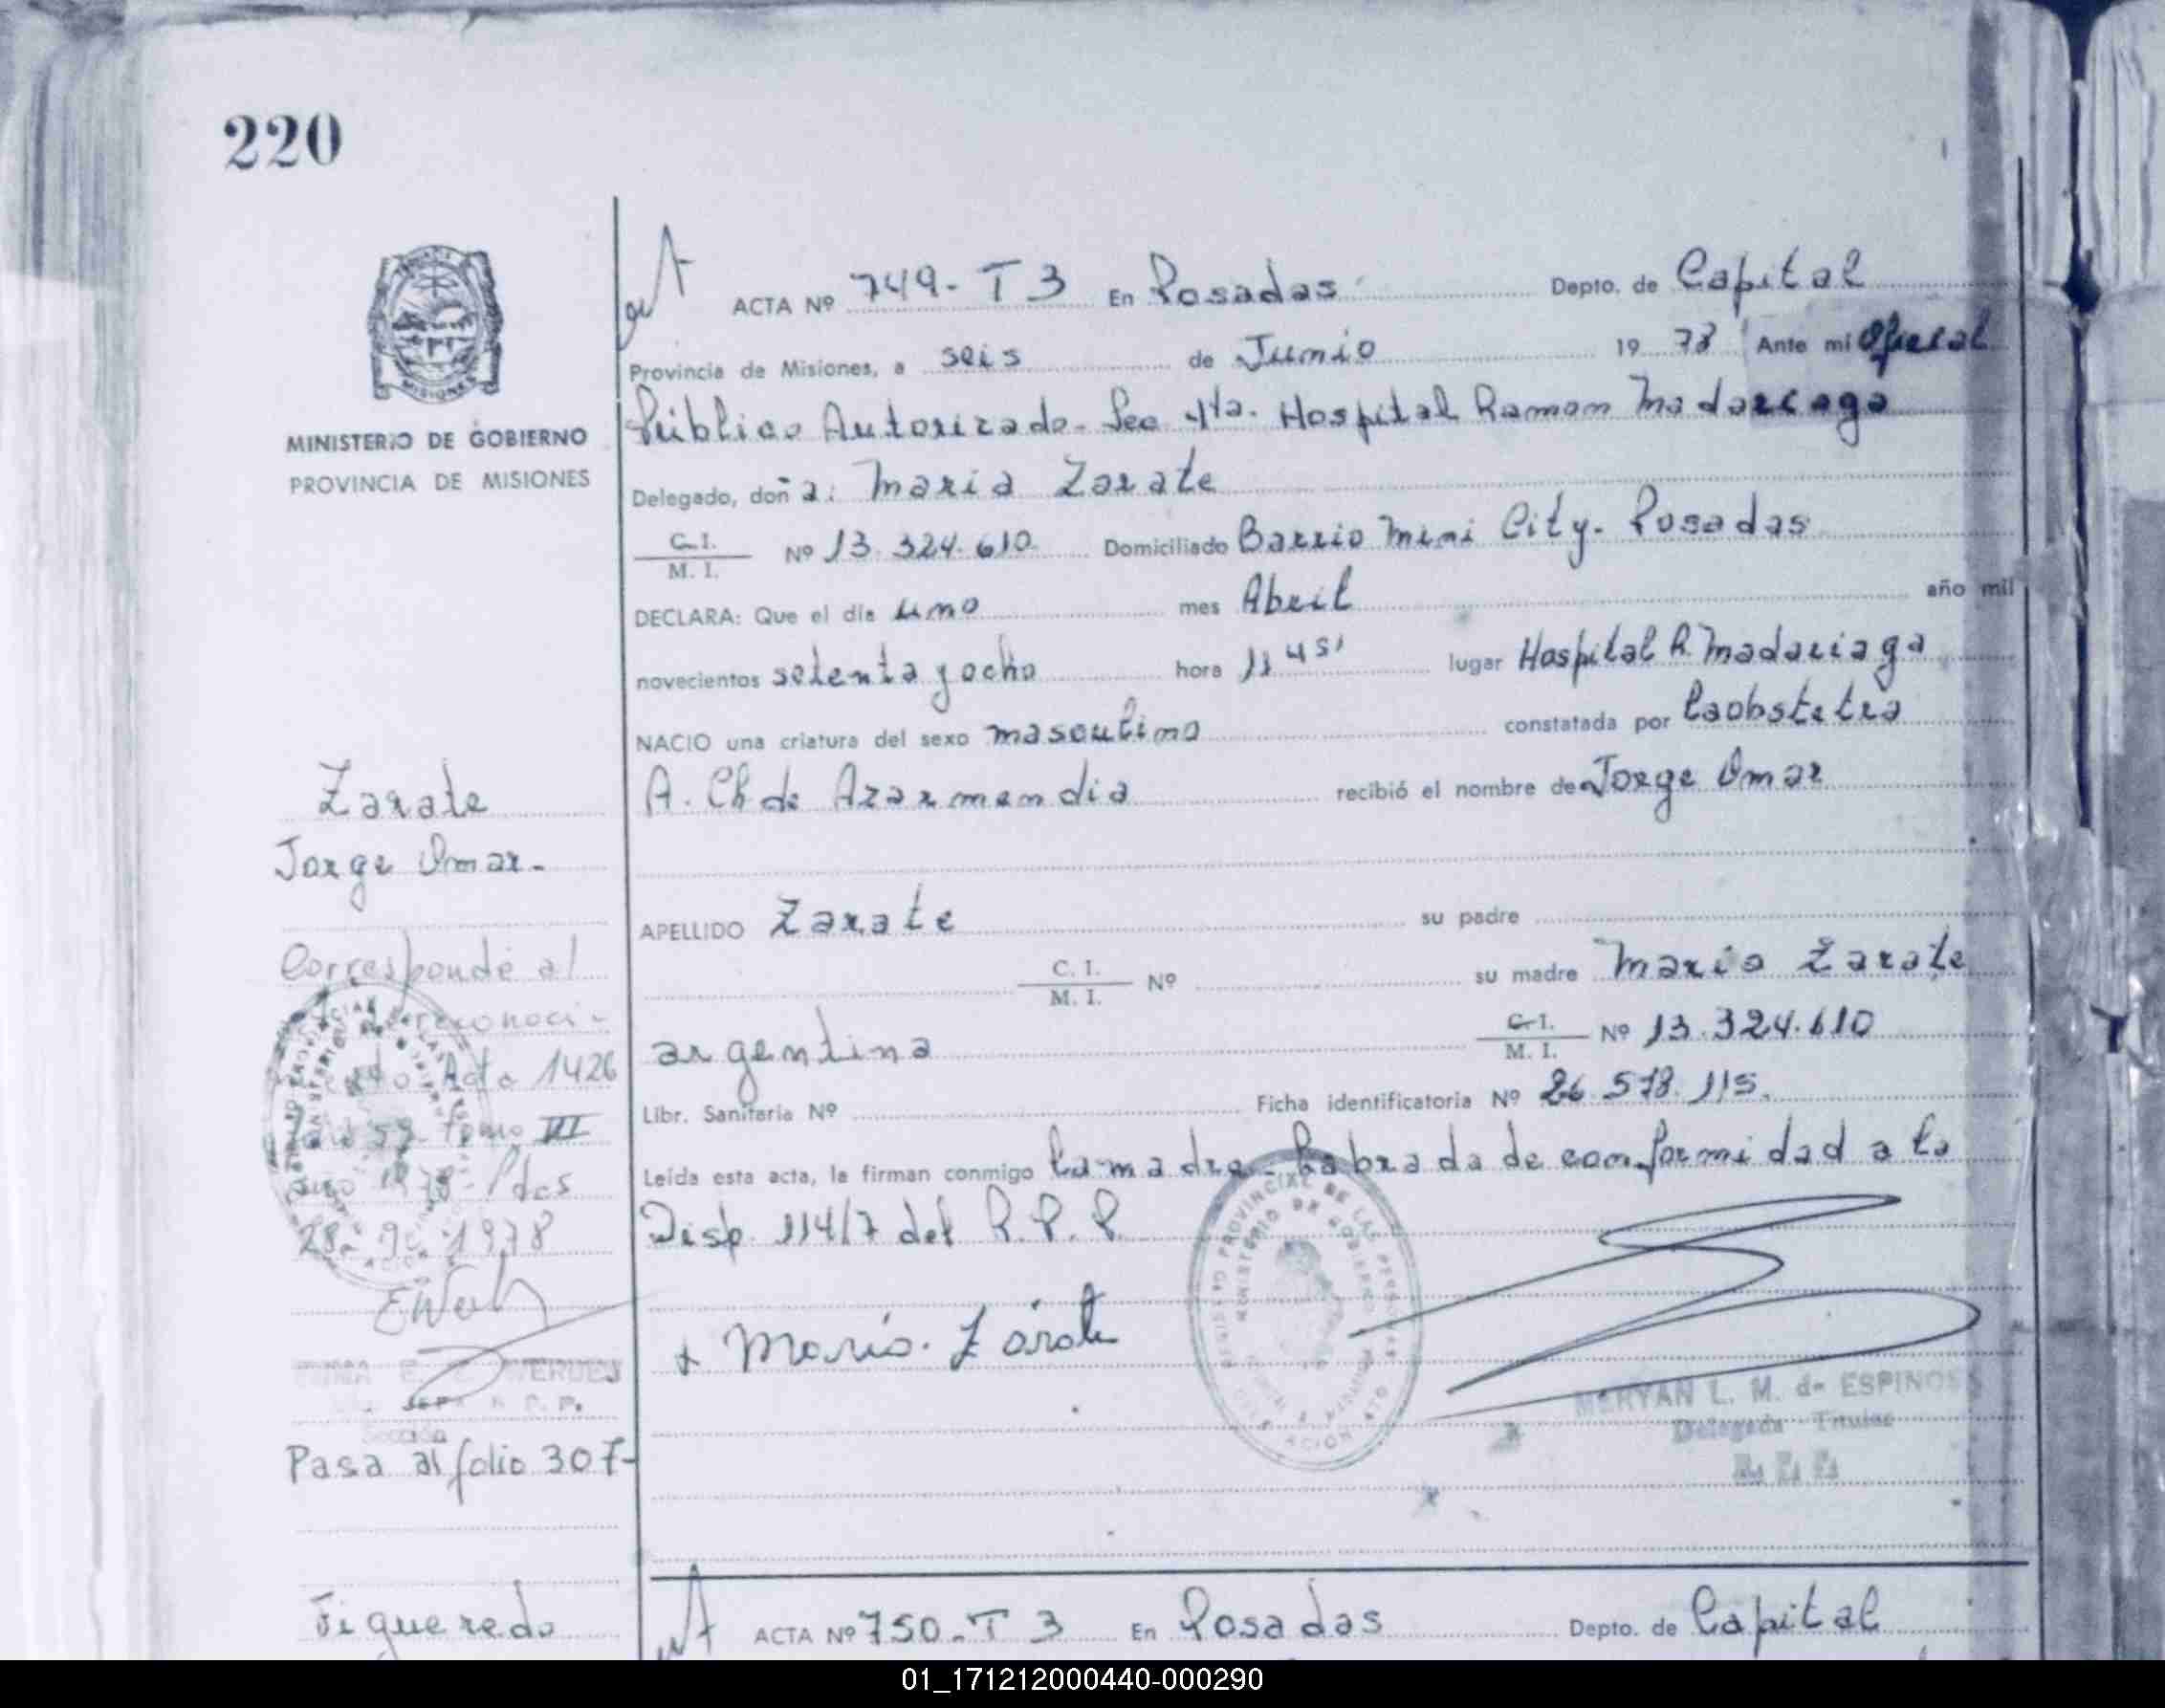 220
MINISTERIO DE GOBIERNO
PROVINCIA DE MISIONES
ACTA Nº 749-T 3 En Posadas Depto. de Capital
Provincia de Misiones, a seis de Junio 1978 Ante mi Oficial
Público Autorizado- Sec 4ta. Hospital Ramon Madariaga
Delegado, doña: Maria Zarate
C.I.
M. I.
Nº 13.324.610 Domiciliado Barrio Mini City. Posadas
DECLARA: Que el día uno mes Abril año mil
novecientos setenta y ocho hora 11 45' lugar Hospital R. Madariaga
NACIO una criatura del sexo masculino constatada por Laobstetra
A. Ch de Azarmendia recibió el nombre de Jorge Omar
APELLIDO Zarate su padre
C. I.
M. I.
Nº su madre Maria Zarate
argentina
C.I.
M. I.
Nº 13.324.610
Libr. Sanitaria Nº Ficha identificatoria Nº 26.578.115.
Leída esta acta, la firman conmigo la madre- Labrada de conformidad a la
Disp. 114/7 del R.P.P.
+ Maria. Zárate
REGISTRO PROVINCIAL DE LAS PERSONAS
MINISTERIO DE GOBIERNO
MERYAN L. M. de ESPINOSA
Delegada Titular
R. P. P.
Zarate
Jorge Omar-
Corresponde al
reconoci-
Acta 1426
Tomo III
1978- Pdas
28-9-1978
Pasa al folio 307-
Figueredo
ACTA Nº 750-T 3 En Posadas Depto. de Capital
01_171212000440-000290